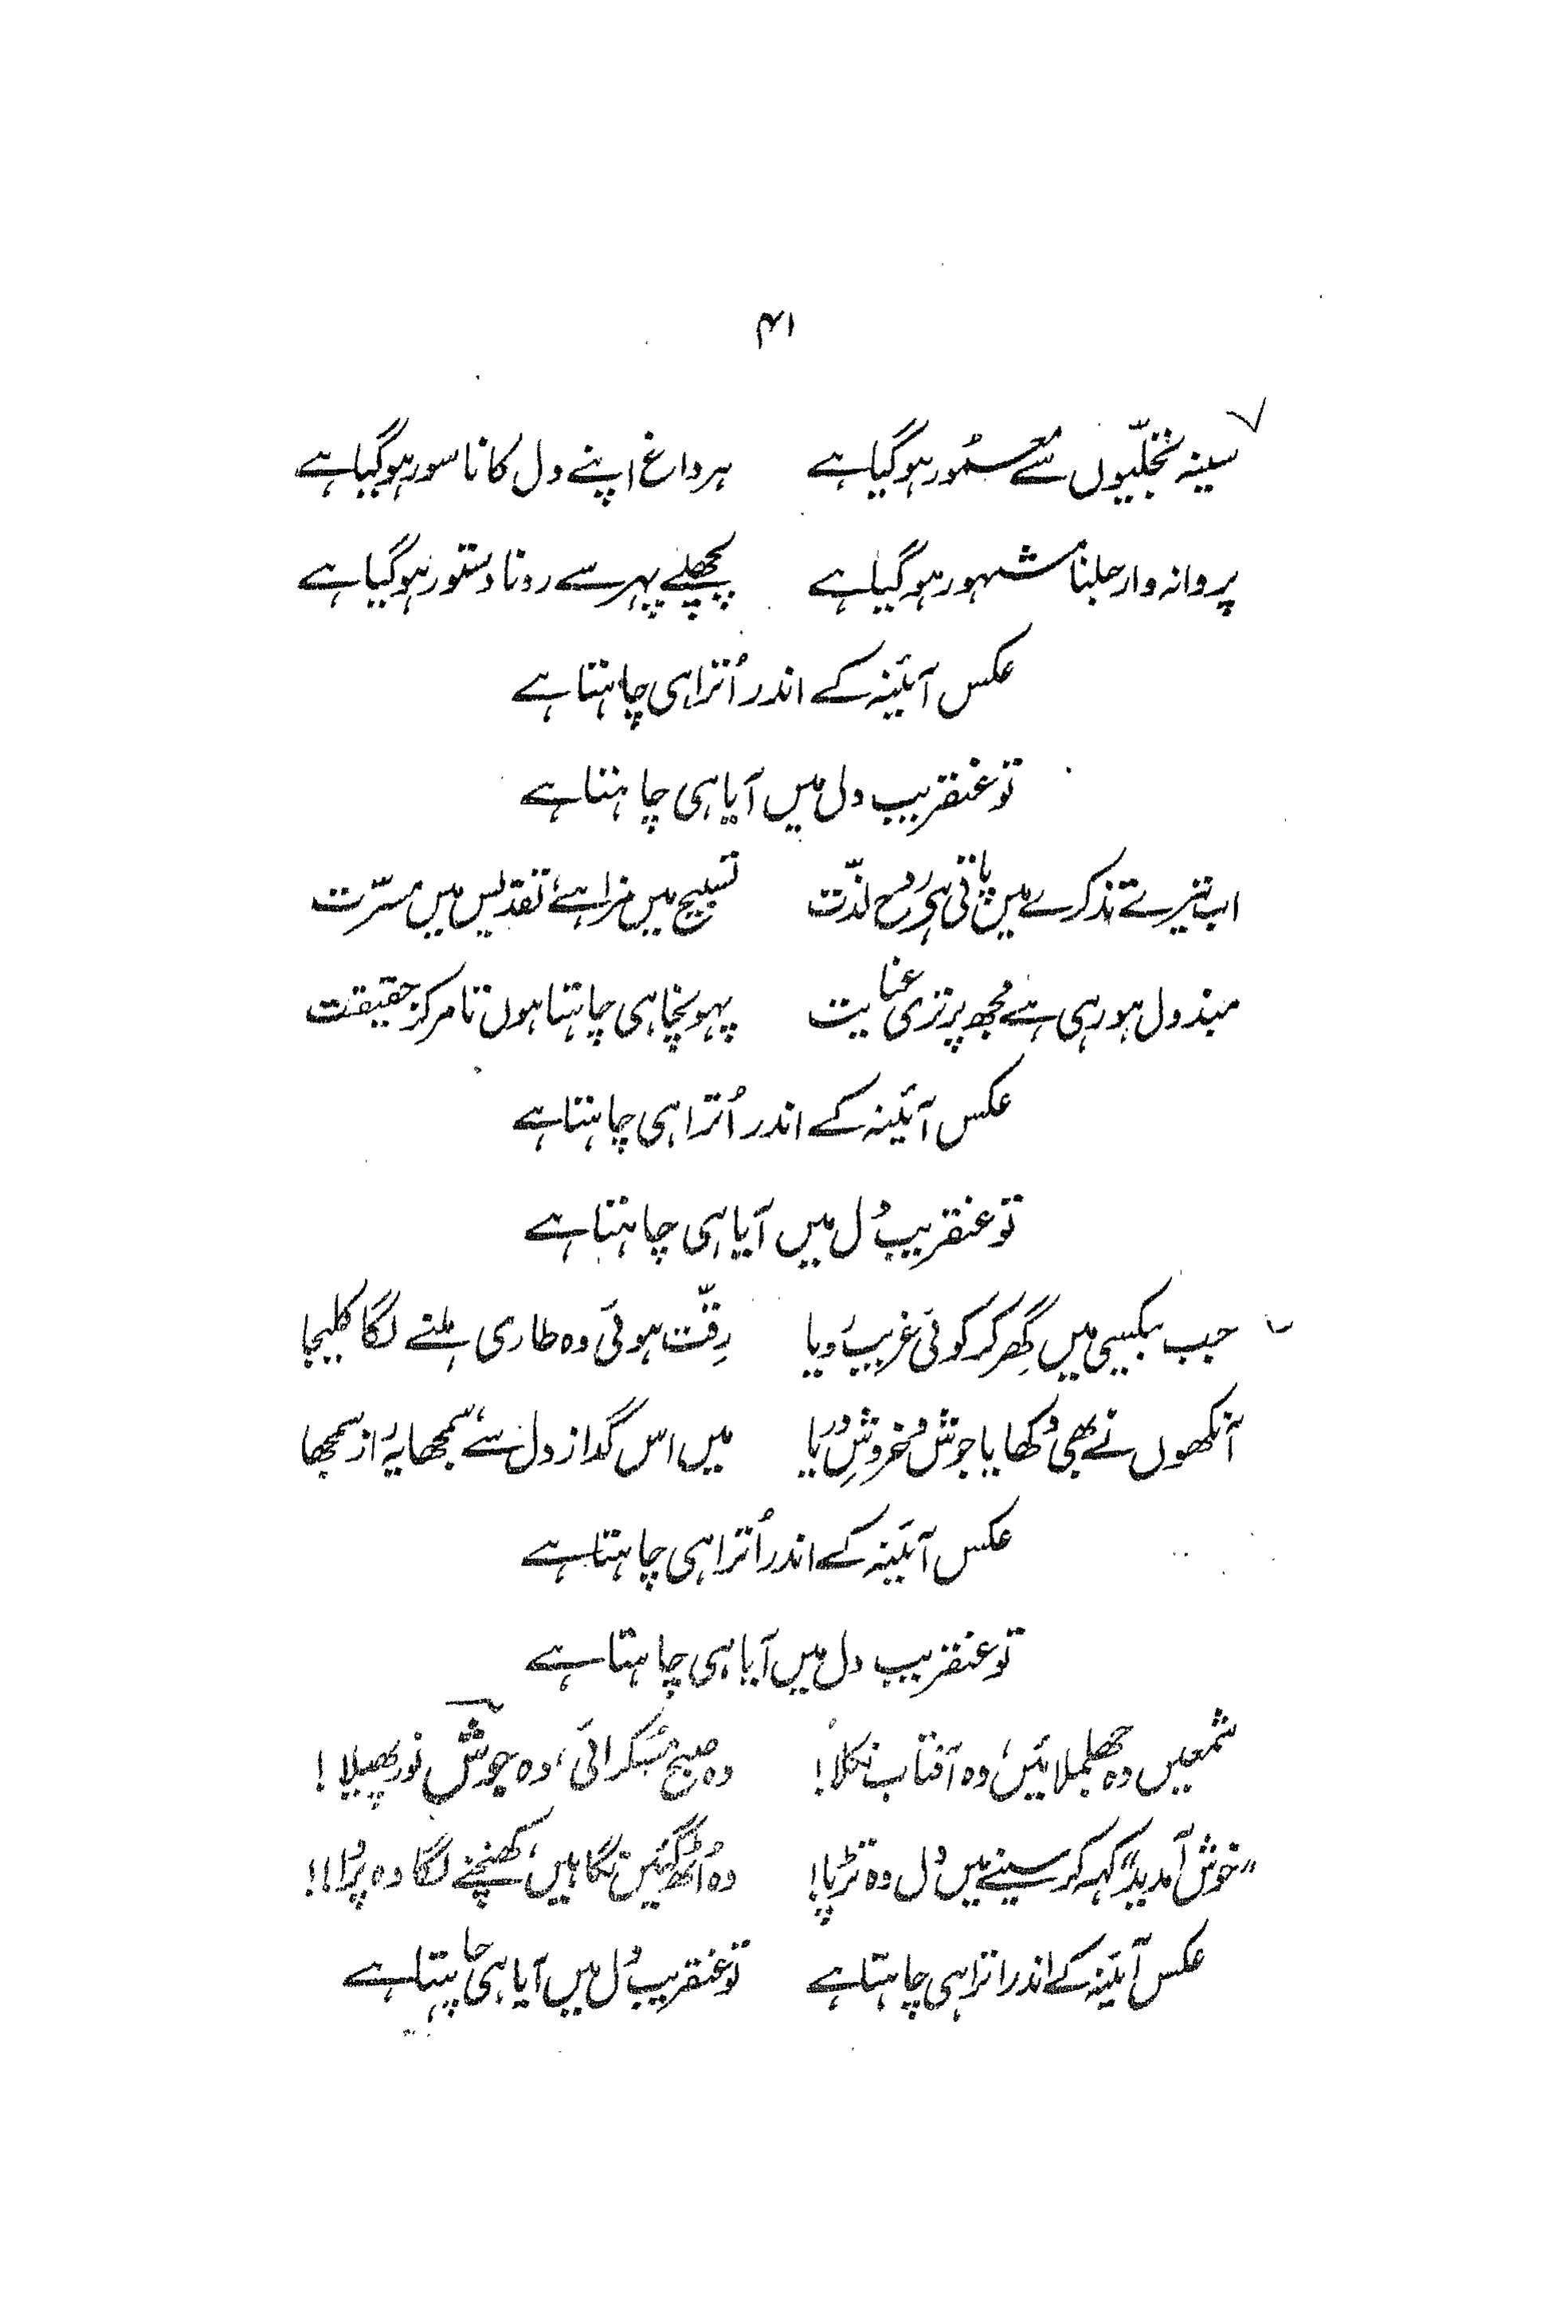 ۴۱
سینہ تجلّیوں سے معمُور ہوگیا ہے ہر داغ اپنے دل کا ناسور ہوگیا ہے
پروانہ وار جلنا مشہور ہوگیا ہے پچھلے پہر سے رونا دستور ہوگیا ہے
عکس آئینہ کے اندر اُترا ہی چاہتا ہے
تو عنقریب دل میں آیا ہی چاہتا ہے
اب تیرے تذکرے میں پاتی ہی روح لذّت تسبیح میں مزا ہے، تقدیس میں مسرّت
مبذول ہو رہی ہے مجھ پر تری عنایت پہونچا ہی چاہتا ہوں تا مرکز حقیقت
عکس آئینہ کے اندر اُترا ہی چاہتا ہے
تو عنقریب دل میں آیا ہی چاہتا ہے
جب بیکسی میں گھِر کر کوئی غریب رویا رِقّت ہوئی وہ طاری ہلنے لگا کلیجا
آنکھوں نے بھی دکھایا جوش و خروشِ دریا میں اس گداز دل سے سمجھا، یہ راز سمجھا
عکس آئینہ کے اندر اُترا ہی چاہتا ہے
تو عنقریب دل میں آیا ہی چاہتا ہے
شمعیں وہ جھلملائیں، وہ آفتاب نکلا! وہ صبح مُسکرائی، وہ جوش نور پھیلا!
"خوش آمدید" کہہ کر سینے میں دل وہ تڑپا! وہ اُٹھ گئیں نگاہیں، کھنچنے لگا وہ پردا!!
عکس آئینہ کے اندر اترا ہی چاہتا ہے تو عنقریب دل میں آیا ہی چاہتا ہے